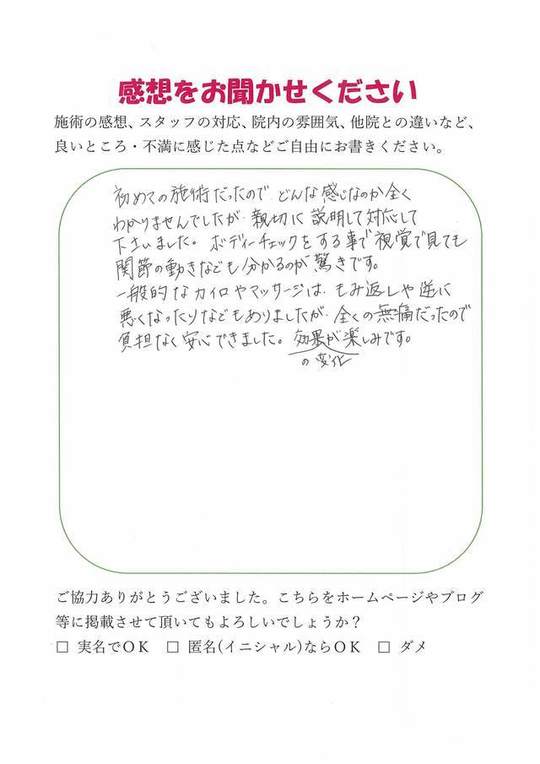 感想をお聞かせください
施術の感想、スタッフの対応、院内の雰囲気、他院との違いなど、
良いところ・不満に感じた点などご自由にお書きください。
初めての施術だったので どんな感じなのか全く
わかりませんでしたが 親切に説明して対応して
下さいました。ボディーチェックをする事で視覚で見ても
関節の動きなども分かるのが驚きです。
一般的なカイロやマッサージは、もみ返しや逆に
悪くなったりなどもありましたが、全くの無痛だったので
負担なく安心できました。効果が楽しみです。
の変化
ご協力ありがとうございました。こちらをホームページやブログ
等に掲載させて頂いてもよろしいでしょうか？
□ 実名でＯＫ □ 匿名(イニシャル)ならＯＫ □ ダメ